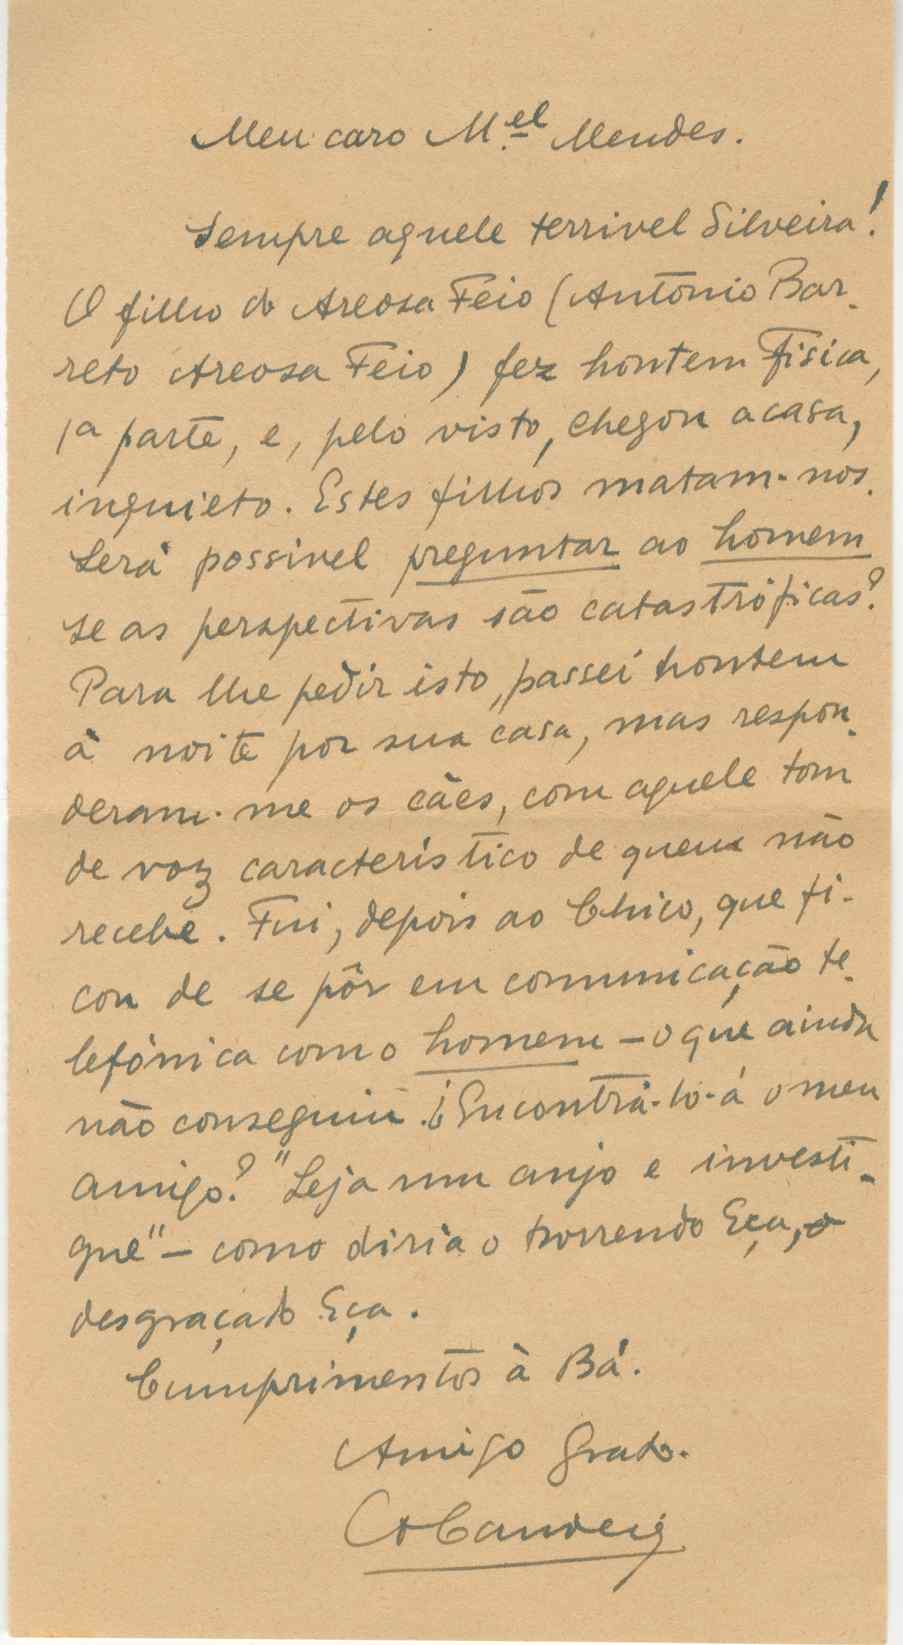 Meu caro M.el Mendes.
Sempre aquele terrivel Silveira!
O filho do Areosa Feio (António Bar-
reto Areosa Feio) fez hontem Física,
1ª parte, e, pelo visto, chegou a casa,
inquieto. Estes filhos matam-nos.
Será possivel preguntar ao homem
se as perspectivas são catastróficas?
Para lhe pedir isto, passei hontem
à noite por sua casa, mas respon-
deram-me os cães, com aquele tom
de voz característico de quem não
recebe. Fui, depois ao Chico, que fi-
cou de se pôr em comunicação te-
lefónica com o homem – o que ainda
não conseguiu. ¿Encontrá-lo-á o meu
amigo? "Seja um anjo e investi-
gue" – como diria o horrendo Eça, o
desgraçado Eça.
Cumprimentos à Bá.
Amigo grato.